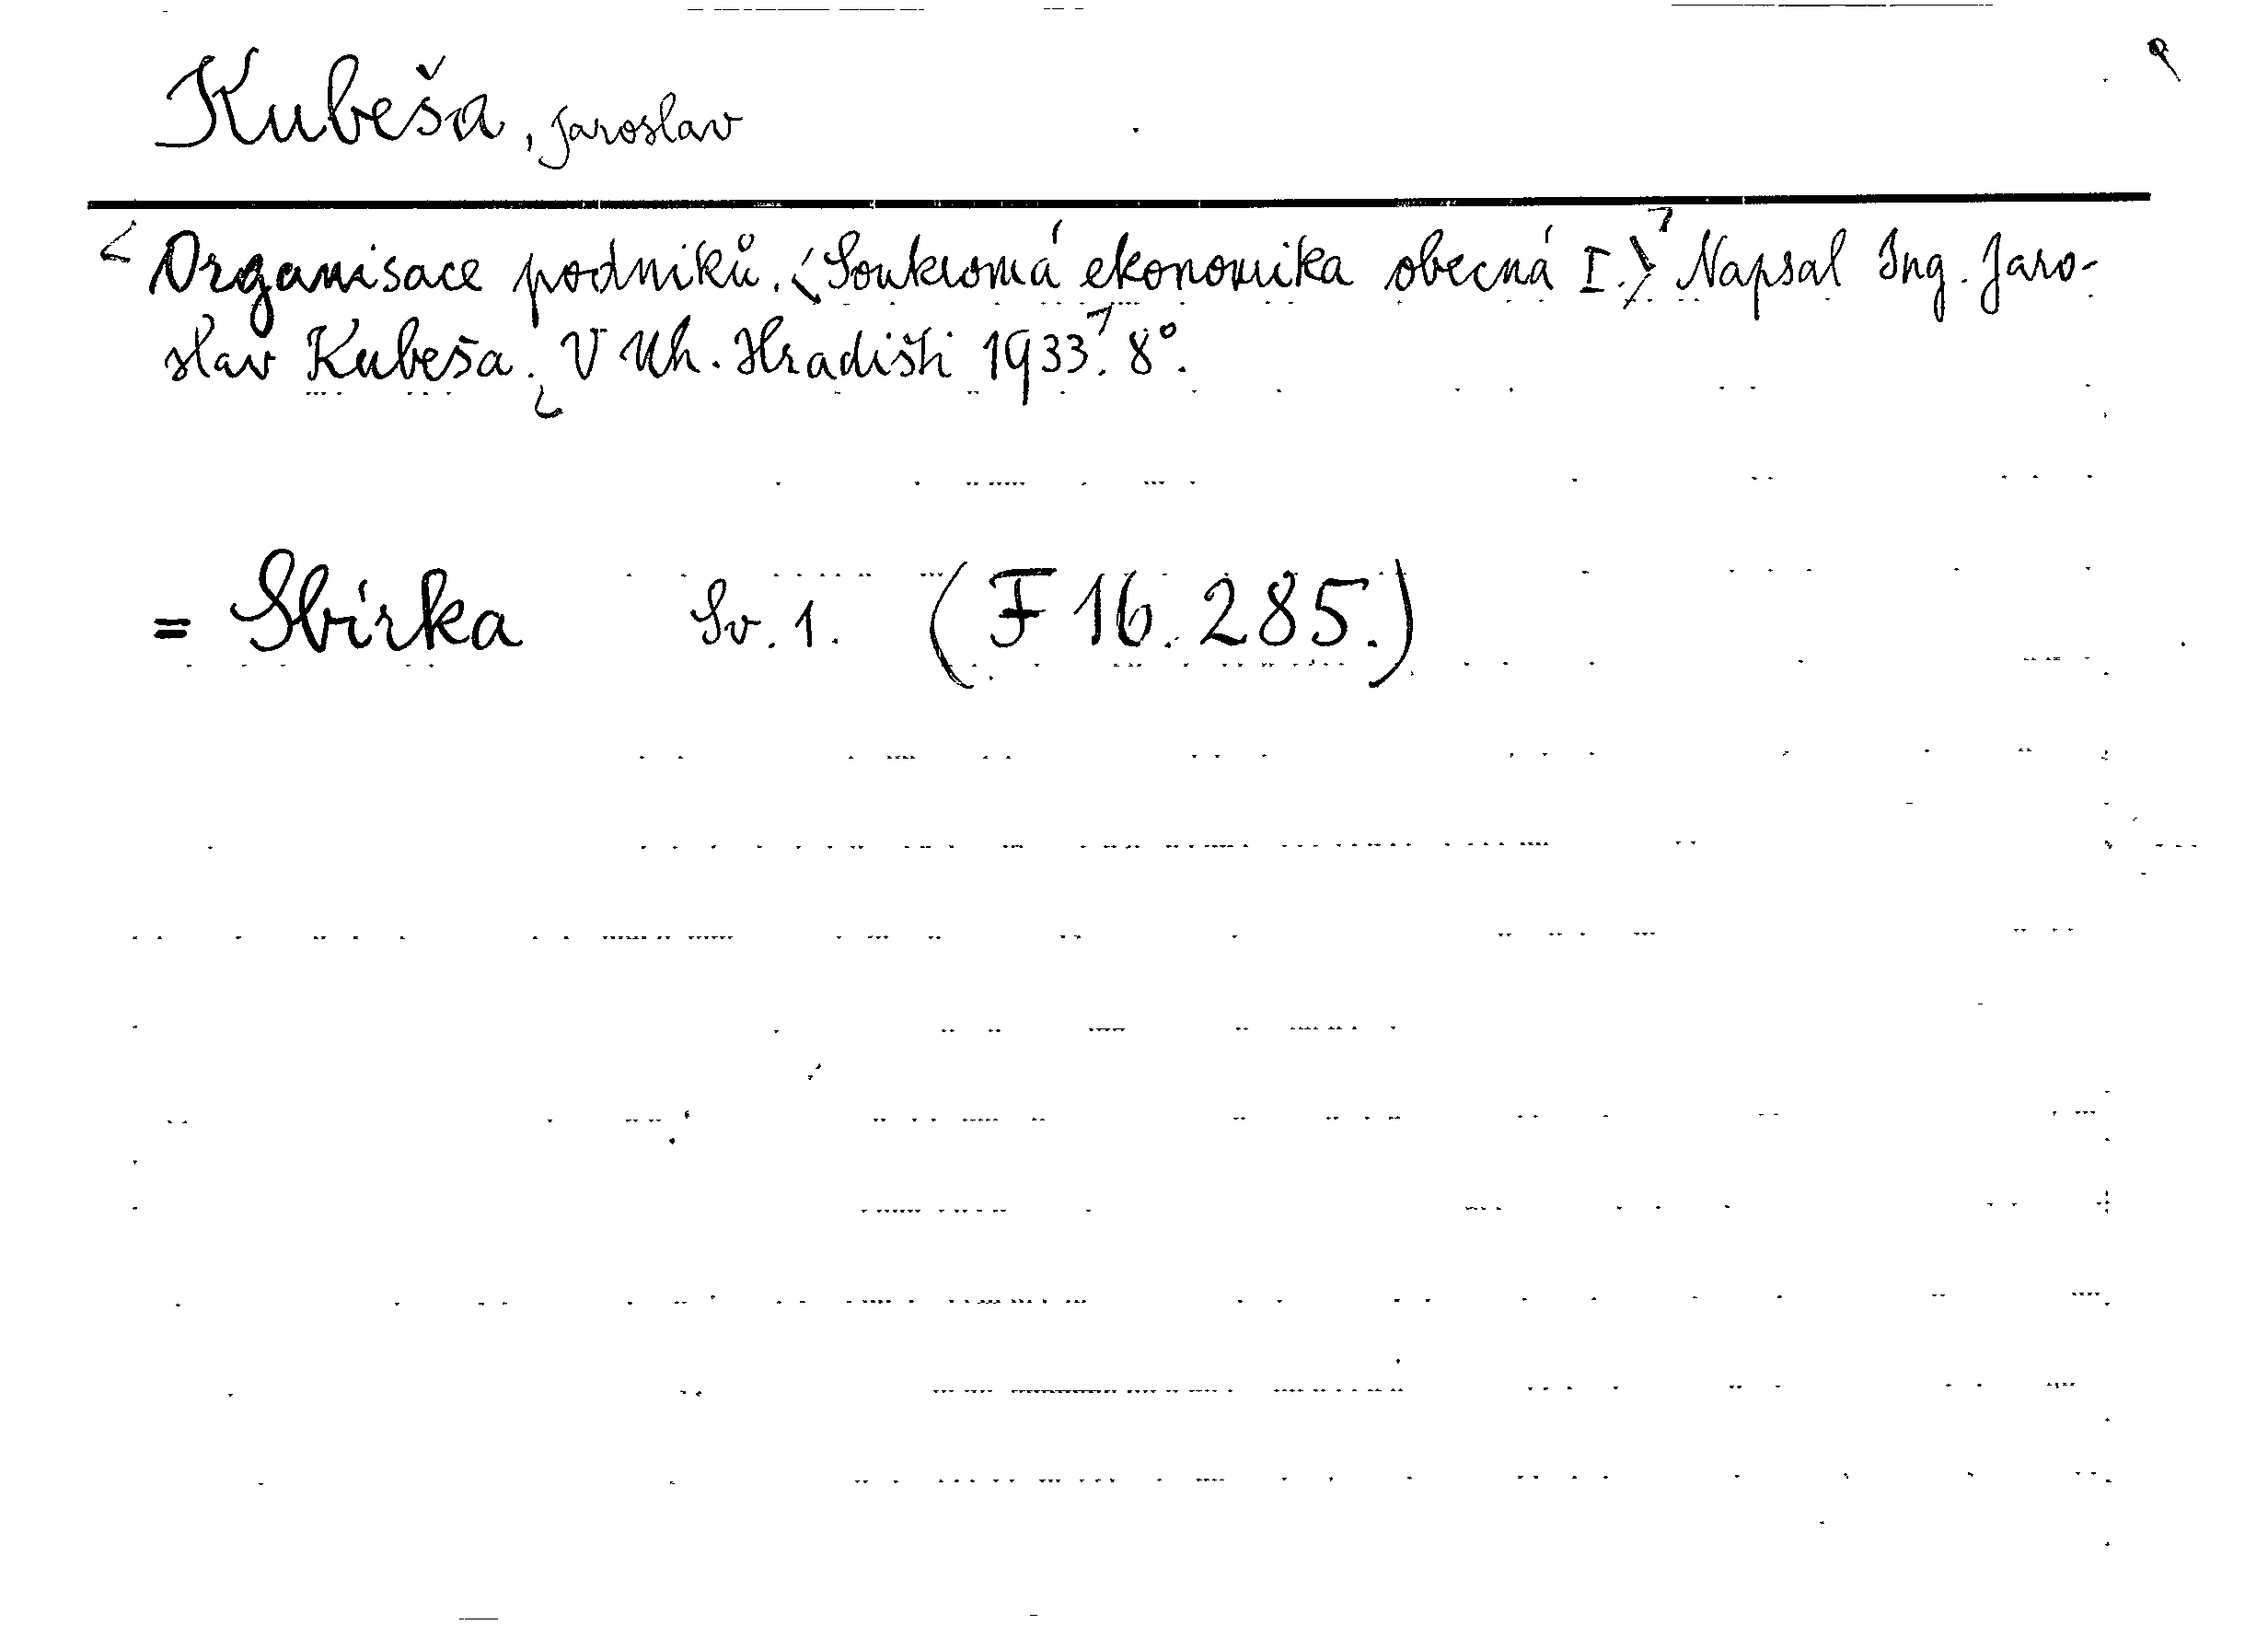 Kubeša, Jaroslav
Organisace podniků. <Soukromá ekonomika obecná I.> Napsal Ing. Jaro-
slav Kubeša. V Uh. Hradišti 1933. 8°.
= Sbírka Sv. 1. (F 16.285.)